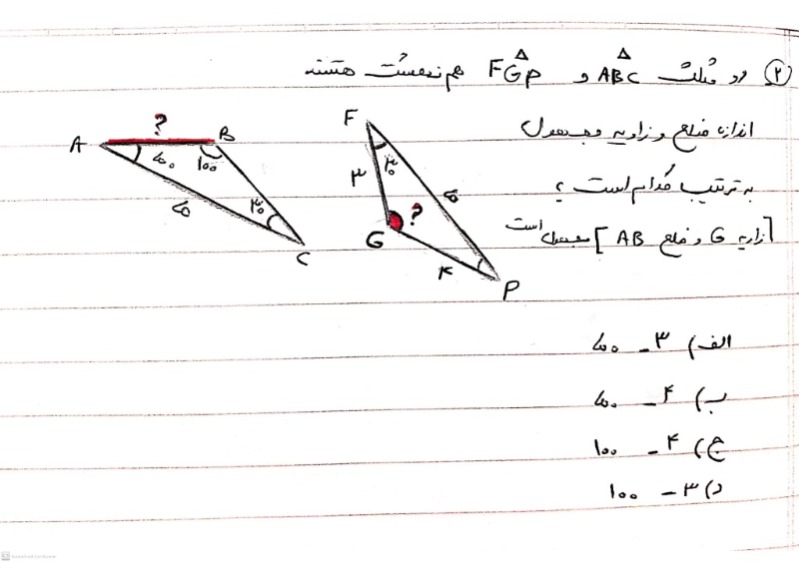 ۲) دو مثلث ABC و FGP هم نهشت هستند
اندازه ضلع و زاویه مجهول
به ترتیب کدام است؟
[زاویه G و ضلع AB] مجهول است
A
?
B
۱۰۰
۳۰
C
F
۳۰
۳
G
?
۴
P
الف) ۳ _
ب) ۴ _
ج) ۴ _ ۱۰۰
د) ۳ _ ۱۰۰